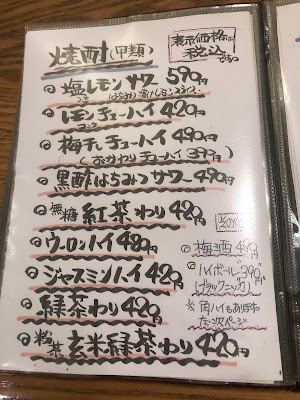 焼酎(甲類)
表示価格は
税込です
塩レモンサワー 590円
レモンチューハイ 420円
梅干しチューハイ 490円
(おかわりチューハイ 390円)
黒酢はちみつサワー 490円
無糖 紅茶わり 420円
ウーロンハイ 420円
その他
梅酒 490円
ジャスミンハイ 420円
ハイボール 390円
(ブラックニッカ)
緑茶わり 420円
※角ハイもあります
次ページ
粉茶 玄米緑茶わり 420円